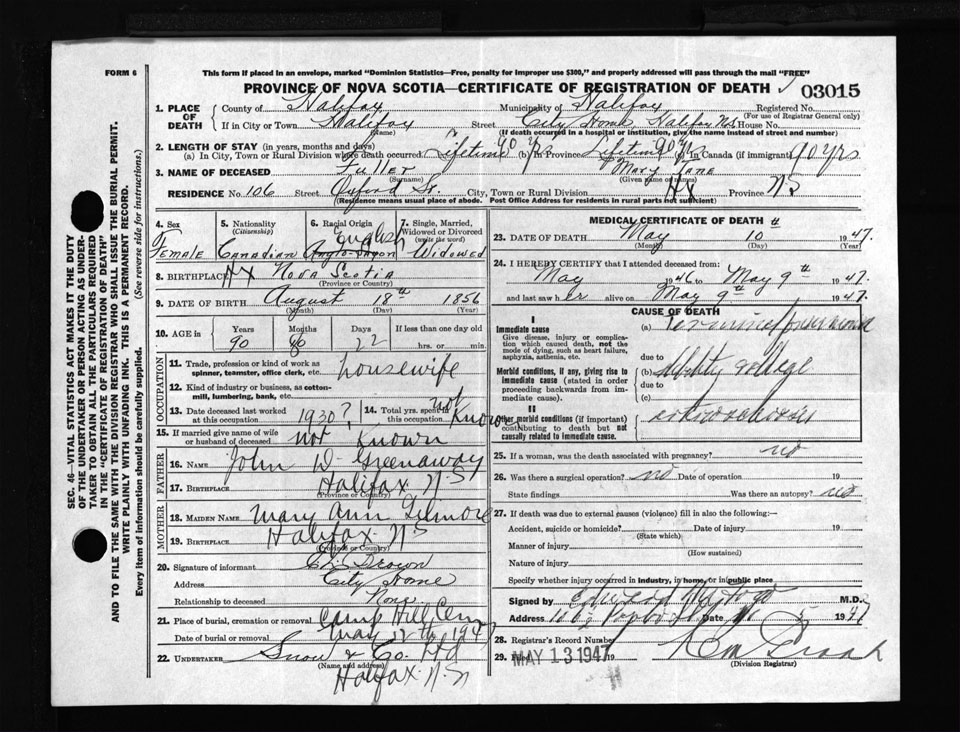 FORM 6
This form if placed in an envelope, marked "Dominion Statistics—Free, penalty for improper use $300," and properly addressed will pass through the mail "FREE"
PROVINCE OF NOVA SCOTIA—CERTIFICATE OF REGISTRATION OF DEATH
03015
1. PLACE OF DEATH
County of Halifax Municipality of Halifax Registered No.
(For use of Registrar General only)
If in City or Town Halifax Street City Home, Halifax N.S. House No.
(Name) (If death occurred in a hospital or institution, give the name instead of street and number)
2. LENGTH OF STAY (in years, months and days)
(a) In City, Town or Rural Division where death occurred Lifetime 90 yrs (b) In Province Lifetime 90 yrs (c) In Canada (if immigrant) 90 yrs
3. NAME OF DECEASED Fuller Mary Jane
(Surname) (Given name or names)
RESIDENCE No. 106 Street Oxford St. City, Town or Rural Division Hx Province NS
(Residence means usual place of abode. Post Office Address for residents in rural parts not sufficient)
4. Sex 5. Nationality (Citizenship) 6. Racial Origin 7. Single, Married, Widowed or Divorced (write the word)
Female Canadian English Anglo-Saxon Widowed
8. BIRTHPLACE Hx Nova Scotia
(Province or Country)
9. DATE OF BIRTH August 18th 1856
(Month) (Day) (Year)
10. AGE in Years Months Days If less than one day old
90 22 hrs. or min.
OCCUPATION
11. Trade, profession or kind of work as spinner, teamster, office clerk, etc. housewife
12. Kind of industry or business, as cotton-mill, lumbering, bank, etc.
13. Date deceased last worked at this occupation 1930? 14. Total yrs. spent in this occupation not known
15. If married give name of wife or husband of deceased not known
FATHER
16. NAME John W Greenaway
17. BIRTHPLACE Halifax N.S
(Province or Country)
MOTHER
18. MAIDEN NAME Mary Ann Gilmore
19. BIRTHPLACE Halifax N S
(Province or Country)
20. Signature of informant Brown
Address City Home
Relationship to deceased None
21. Place of burial, cremation or removal Camp Hill Cem
Date of burial or removal May 12th 1947
22. UNDERTAKER Snow & Co. Ltd
(Name and address)
Halifax N.S
MEDICAL CERTIFICATE OF DEATH
23. DATE OF DEATH May 10th 1947.
(Month) (Day) (Year)
24. I HEREBY CERTIFY that I attended deceased from:
May 1946 to May 9th 1947.
and last saw her alive on May 9th 1947.
CAUSE OF DEATH
I
Immediate cause
Give disease, injury or complication which caused death, not the mode of dying, such as heart failure, asphyxia, asthenia, etc.
(a) Terminal
due to
Morbid conditions, if any, giving rise to immediate cause (stated in order proceeding backwards from immediate cause).
(b)
due to
(c)
II
Other morbid conditions (if important) contributing to death but not causally related to immediate cause.
25. If a woman, was the death associated with pregnancy? no
26. Was there a surgical operation? no Date of operation 19
State findings Was there an autopsy? no
27. If death was due to external causes (violence) fill in also the following:—
Accident, suicide or homicide? Date of injury 19
(State which)
Manner of injury
(How sustained)
Nature of injury
Specify whether injury occurred in industry, in home, or in public place
Signed by M.D.
Address Date 1947
28. Registrar's Record Number
29. MAY 13 1947 19
(Division Registrar)
SEC. 46—VITAL STATISTICS ACT MAKES IT THE DUTY OF THE UNDERTAKER OR PERSON ACTING AS UNDERTAKER TO OBTAIN ALL THE PARTICULARS REQUIRED IN THE "CERTIFICATE OF REGISTRATION OF DEATH" AND TO FILE THE SAME WITH THE DIVISION REGISTRAR WHO SHALL ISSUE THE BURIAL PERMIT.
WRITE PLAINLY WITH UNFADING INK. THIS IS A PERMANENT RECORD.
Every item of information should be carefully supplied. (See reverse side for instructions.)